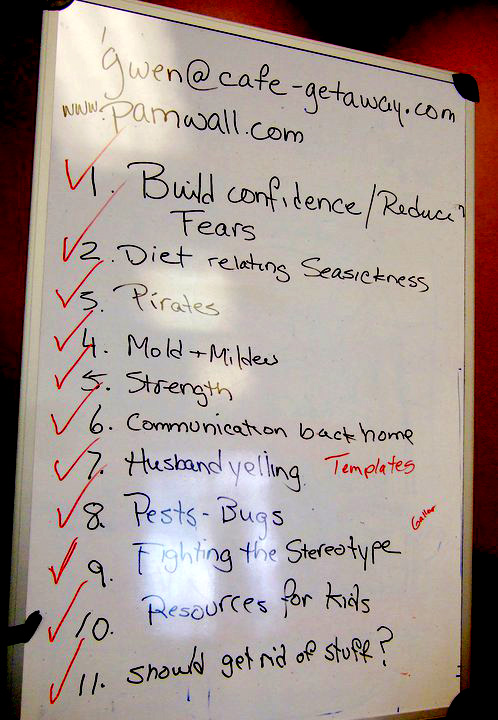 gwen@cafe-getaway.com
www.pamwall.com
1. Build confidence/Reduce
Fears
2. Diet relating Seasickness
3. Pirates
4. Mold + Mildew
5. Strength
6. Communication back home
7. Husband yelling. Templates
8. Pests - Bugs
9. Fighting the Stereotype
10. Resources for kids
11. should get rid of stuff?